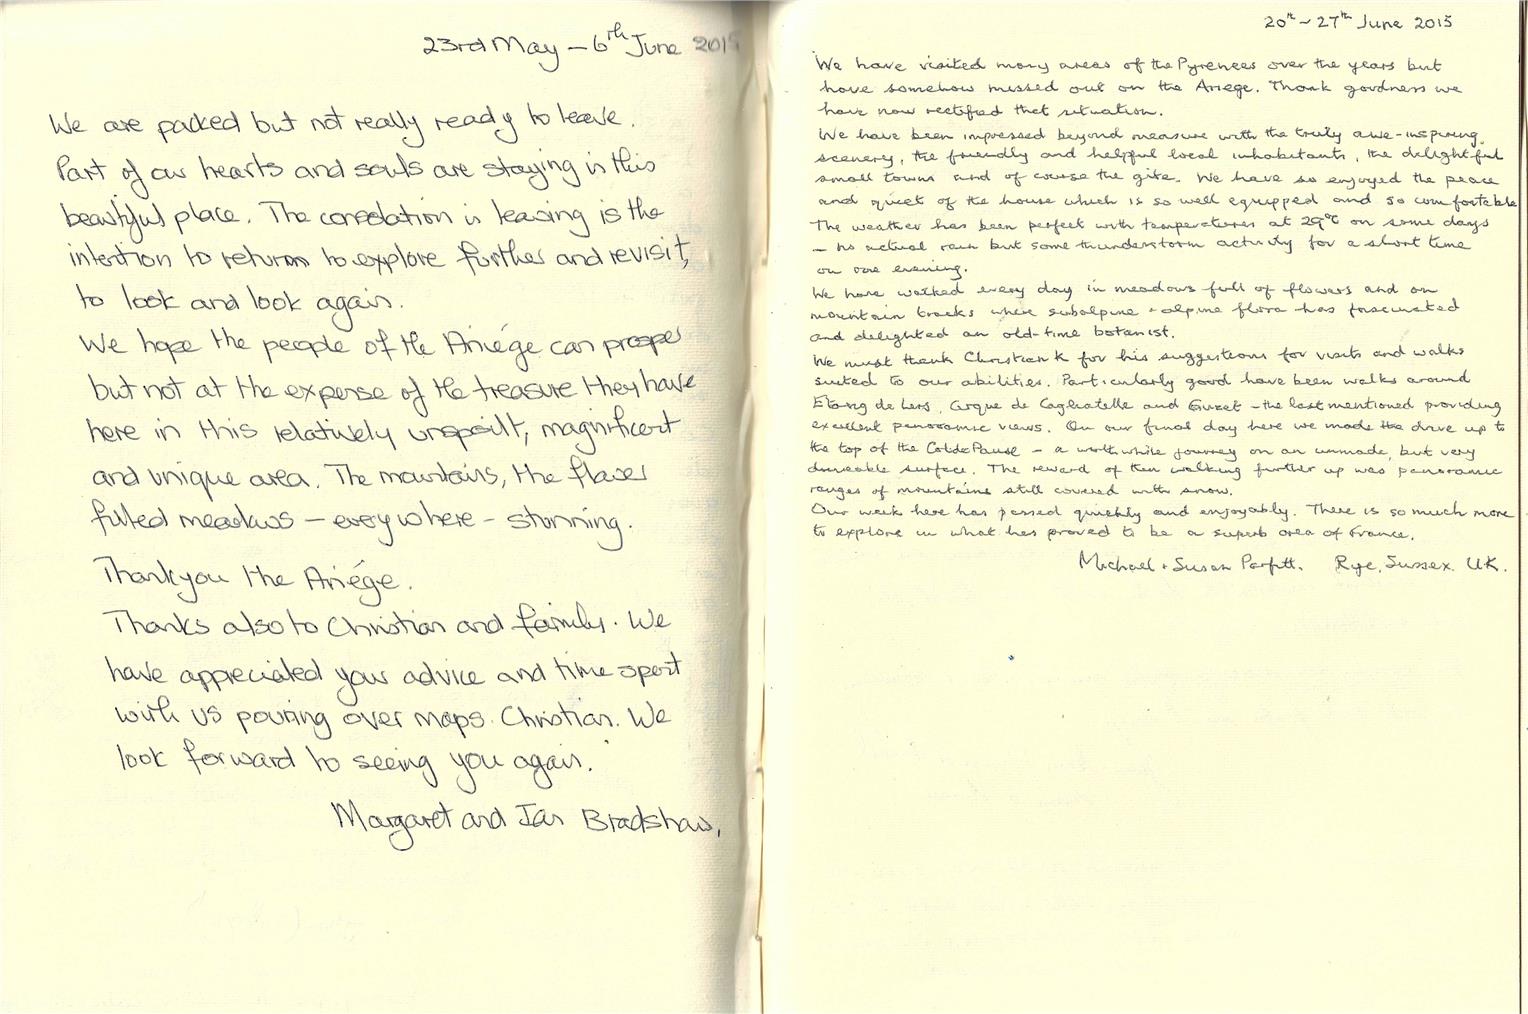 23rd May – 6th June 2015
We are packed but not really ready to leave.
Part of our hearts and souls are staying in this
beautiful place. The consolation in leaving is the
intention to return to explore further and revisit,
to look and look again.
We hope the people of the Ariége can prosper
but not at the expense of the treasure they have
here in this relatively unspoilt, magnificent
and unique area. The mountains, the flower
filled meadows – everywhere – stunning.
Thankyou the Ariége.
Thanks also to Christian and family. We
have appreciated your advice and time spent
with us pouring over maps Christian. We
look forward to seeing you again.
Margaret and Ian Bradshaw.
20th – 27th June 2015
We have visited many areas of the Pyrenees over the years but
have somehow missed out on the Ariege. Thank goodness we
have now rectified that situation.
We have been impressed beyond measure with the truly awe-inspiring
scenery, the friendly and helpful local inhabitants, the delightful
small towns and of course the gite. We have so enjoyed the peace
and quiet of the house which is so well equipped and so comfortable
The weather has been perfect with temperatures at 29°C on some days
– no actual rain but some thunderstorm activity for a short time
on one evening.
We have walked every day in meadows full of flowers and on
mountain tracks where subalpine + alpine flora has fascinated
and delighted an old-time botanist.
We must thank Christian K for his suggestions for visits and walks
suited to our abilities. Particularly good have been walks around
Etang de Lers, Cirque de Cagliatelle and Guzet – the last mentioned providing
excellent panoramic views. On our final day here we made the drive up to
the top of the Col de Pause – a worthwhile journey on an unmade, but very
driveable surface. The reward of then walking further up was panoramic
ranges of mountains still covered with snow.
Our week here has passed quickly and enjoyably. There is so much more
to explore in what has proved to be a superb area of France.
Michael + Susan Parfitt. Rye, Sussex. UK.